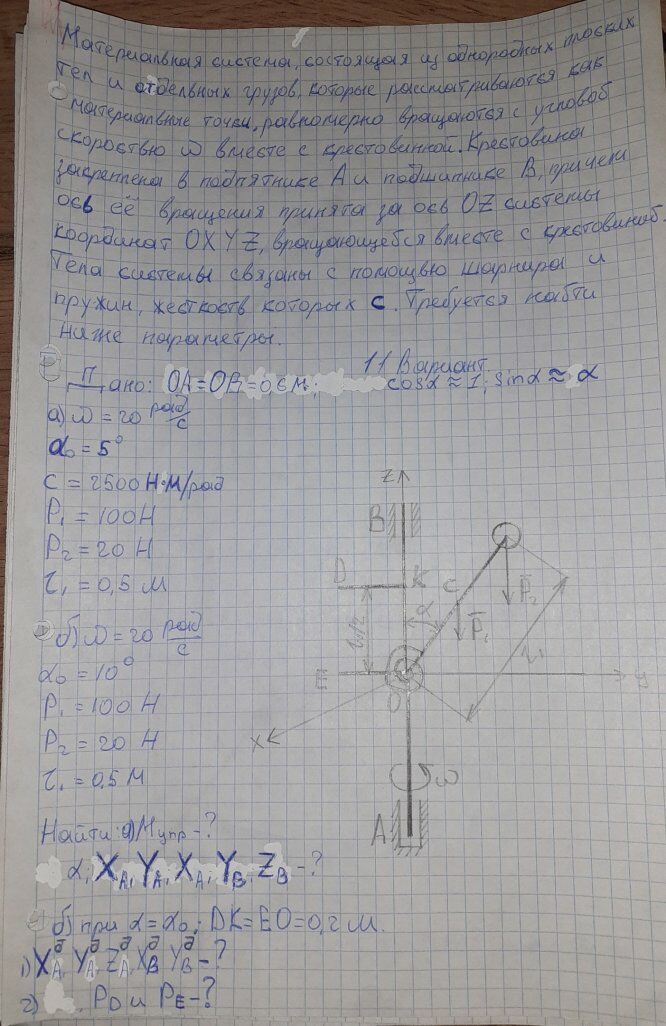 Материальная система, состоящая из однородных плоских
тел и отдельных грузов, которые рассматриваются как
материальные точки, равномерно вращаются с угловой
скоростью ω вместе с крестовинной. Крестовина
закреплена в подпятнике А и подшипнике В, причем
ось её вращения принята за ось OZ системы
координат OXYZ, вращающейся вместе с крестовиной.
Тела системы связаны с помощью шарнира и
пружин, жесткость которых с. Требуется найти
ниже параметры.
11 Вариант
Дано: OA=OB=0,6 м; cosα≈1; sinα≈α
а) ω=20 рад/с
α₀=5°
c=2500 Н·м/рад
P₁=100 Н
P₂=20 Н
r₁=0,5 м
б) ω=20 рад/с
α₀=10°
P₁=100 Н
P₂=20 Н
r₁=0,5 м
Z
B
D
K
C
α
P₁
P₂
r₁
E
O
y
x
ω
A
Найти: а) Mупр-?
α, X_A, Y_A, X_A, Y_B, Z_B-?
б) при α=α₀; DK=EO=0,2 м.
1) X_A^д, Y_A^д, Z_A^д, X_B^д Y_B^д-?
2) P_D и P_E-?